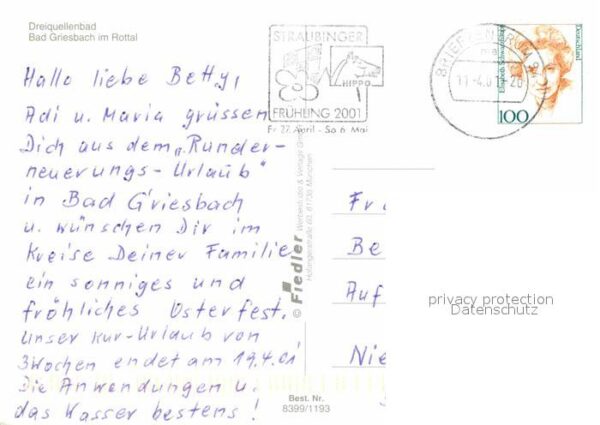 Dreiquellenbad
Bad Griesbach im Rottal
Hallo liebe Betty,
Adi u. Maria grüssen
Dich aus dem „Runder-
neuerungs-Urlaub"
in Bad Griesbach
u. wünschen Dir im
Kreise Deiner Familie
ein sonniges und
fröhliches Osterfest.
Unser Kur-Urlaub von
3 Wochen endet am 19.4.01
Die Anwendungen u.
das Wasser bestens!
STRAUBINGER
HIPPO
FRÜHLING 2001
Fr 27. April - So 6. Mai
BRIEFZENTRUM
Elisabeth Schwarzhaupt
Deutschland
100
© Fiedler Werbestudio & Verlage GmbH
81736 München
Best. Nr.
8399/1193
Fr
Be
Auf
Nie
privacy protection
Datenschutz